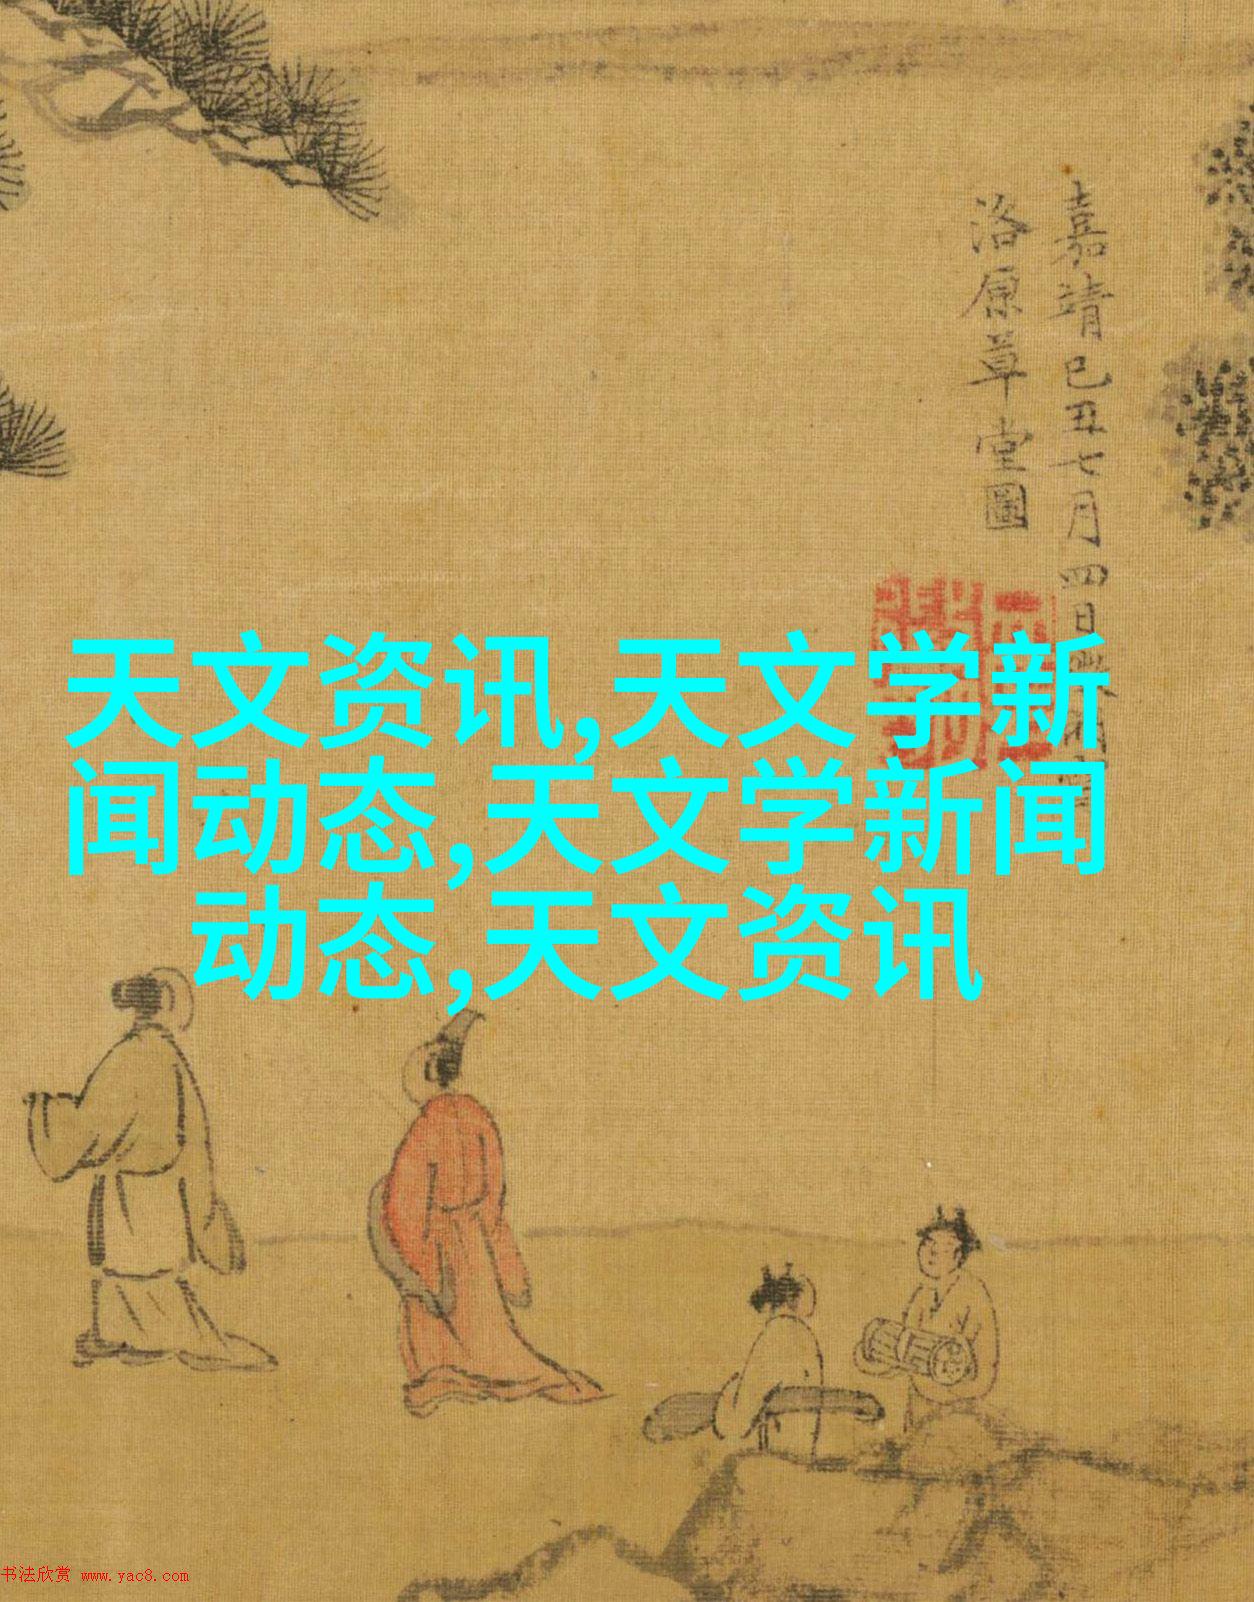 嘉靖己丑七月四日
洛原草堂圖
天文资讯,天文学新
闻动态,天文学新闻
动态,天文资讯
书法欣赏 www.yac8.com